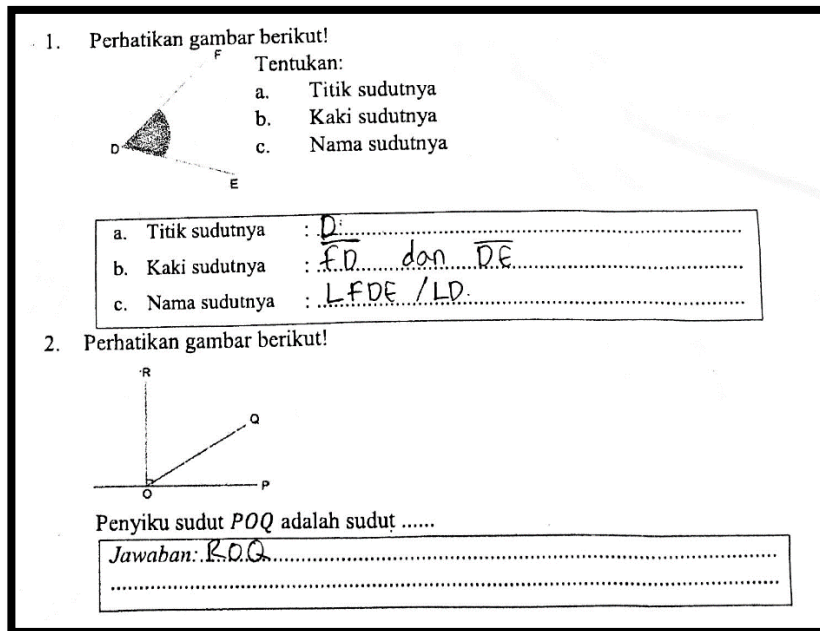 1. Perhatikan gambar berikut!
F
Tentukan:
a. Titik sudutnya
b. Kaki sudutnya
c. Nama sudutnya
D
E
a. Titik sudutnya : D
b. Kaki sudutnya : FD dan DE
c. Nama sudutnya : LFDE / LD.
2. Perhatikan gambar berikut!
R
Q
O P
Penyiku sudut POQ adalah sudut ......
Jawaban: ROQ